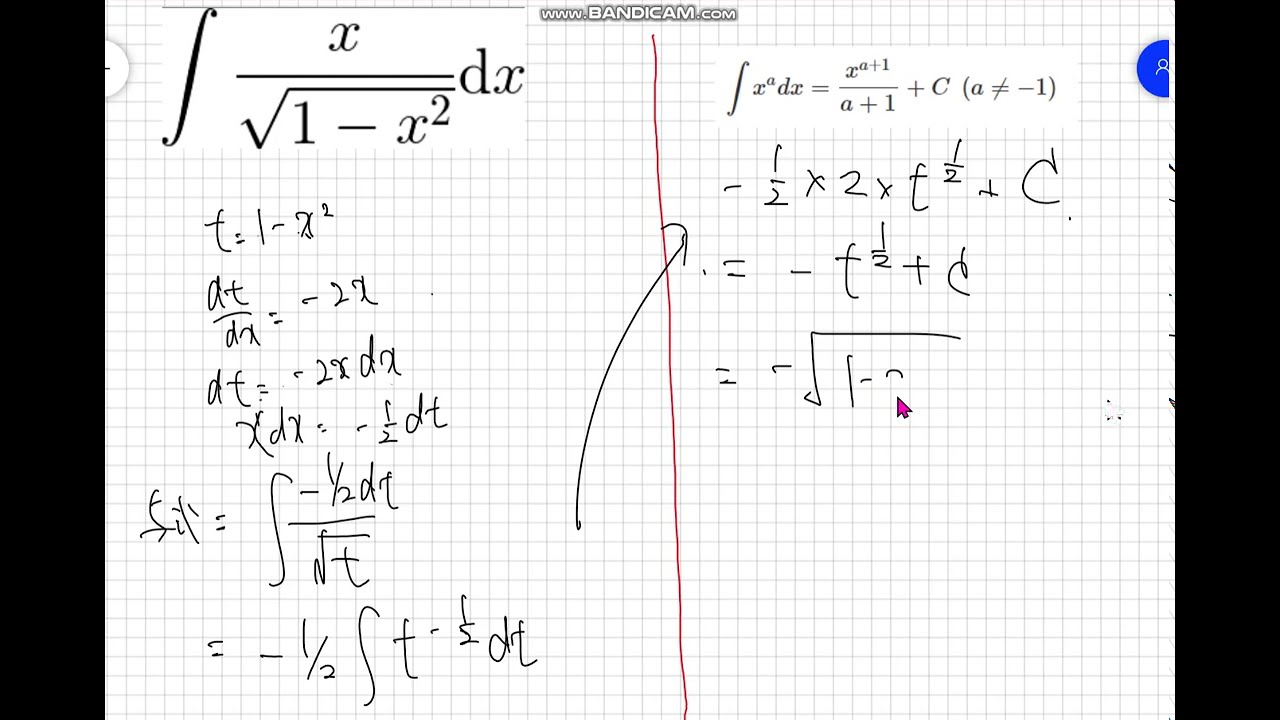 www.BANDICAM.com
∫ x/√(1 − x²) dx
t = 1 - x²
dt/dx = -2x
dt = -2x dx
x dx = -1/2 dt
= ∫ (-1/2 dt)/√t
= -1/2 ∫ t^(-1/2) dt
∫ x^a dx = x^(a+1)/(a + 1) + C (a ≠ −1)
- 1/2 × 2 × t^(1/2) + C.
= - t^(1/2) + C
= -√(1-